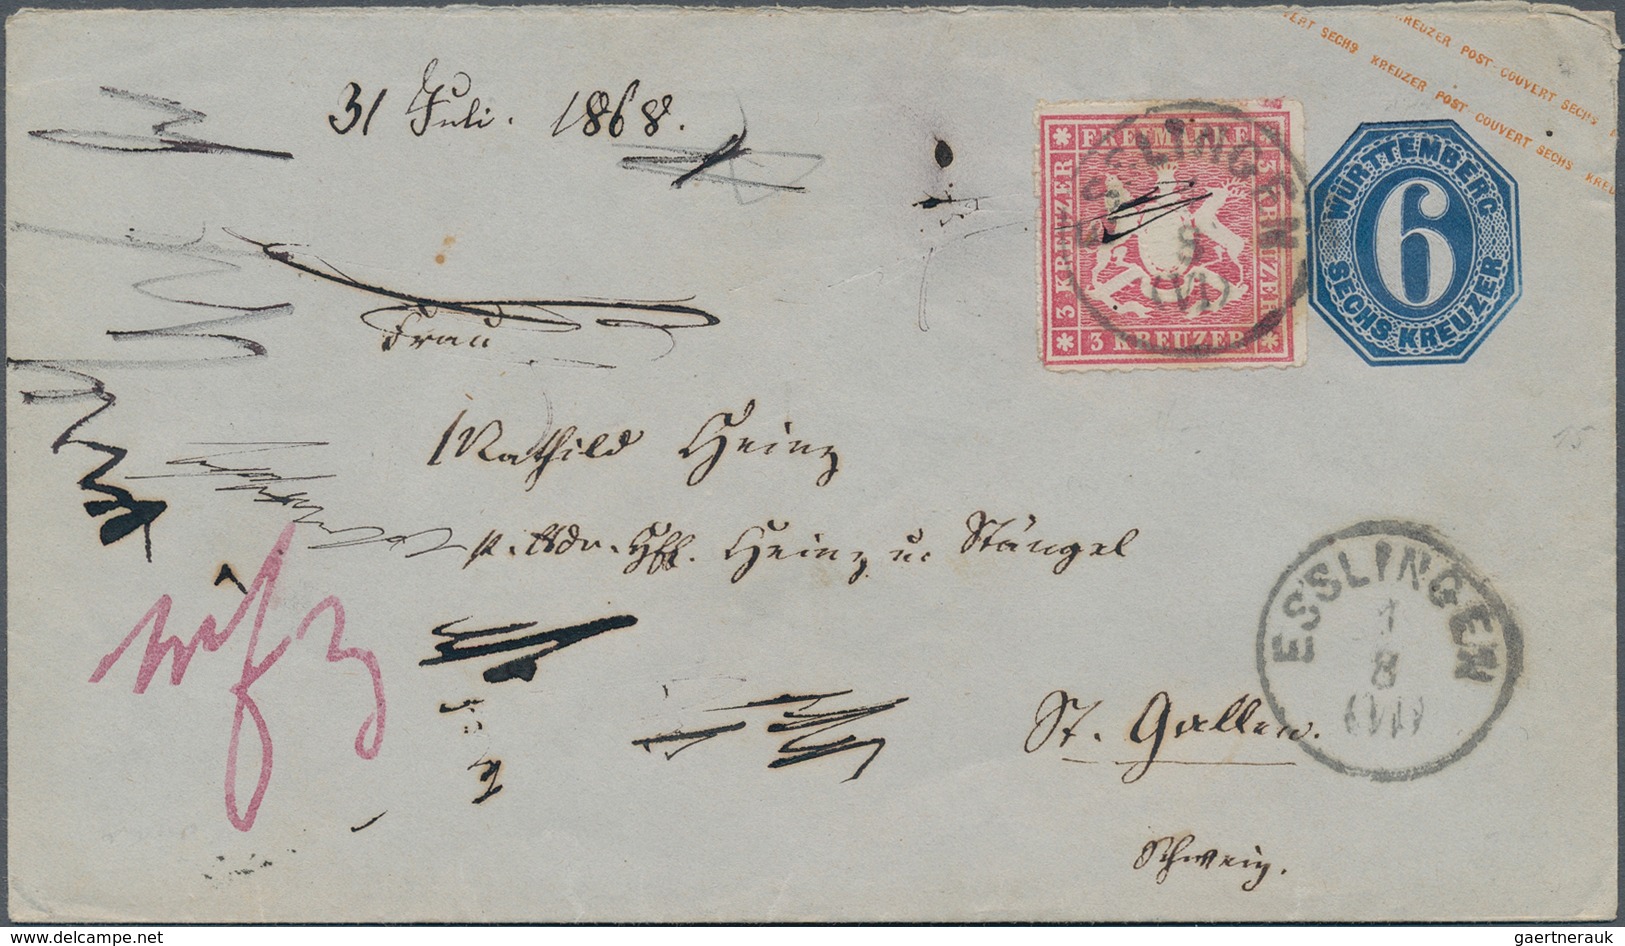 KREUZER POST COUVERT SECHS
VERT SECHS KREUZER POST COUVERT SECHS KREU
31 Juli. 1868.
FREIMARKE
3 KREUZER
3 KREUZER
3 KREUZER
ESSLINGEN
8
(VI)
WÜRTTEMBERG
6
SECHS KREUZER
Frau
Mathild Heinz
p. Adr. HH. Heinz u. Stängel
St. Gallen.
Schweiz.
wf 3
ESSLINGEN
1
8
15
www.delcampe.net
gaertnerauk